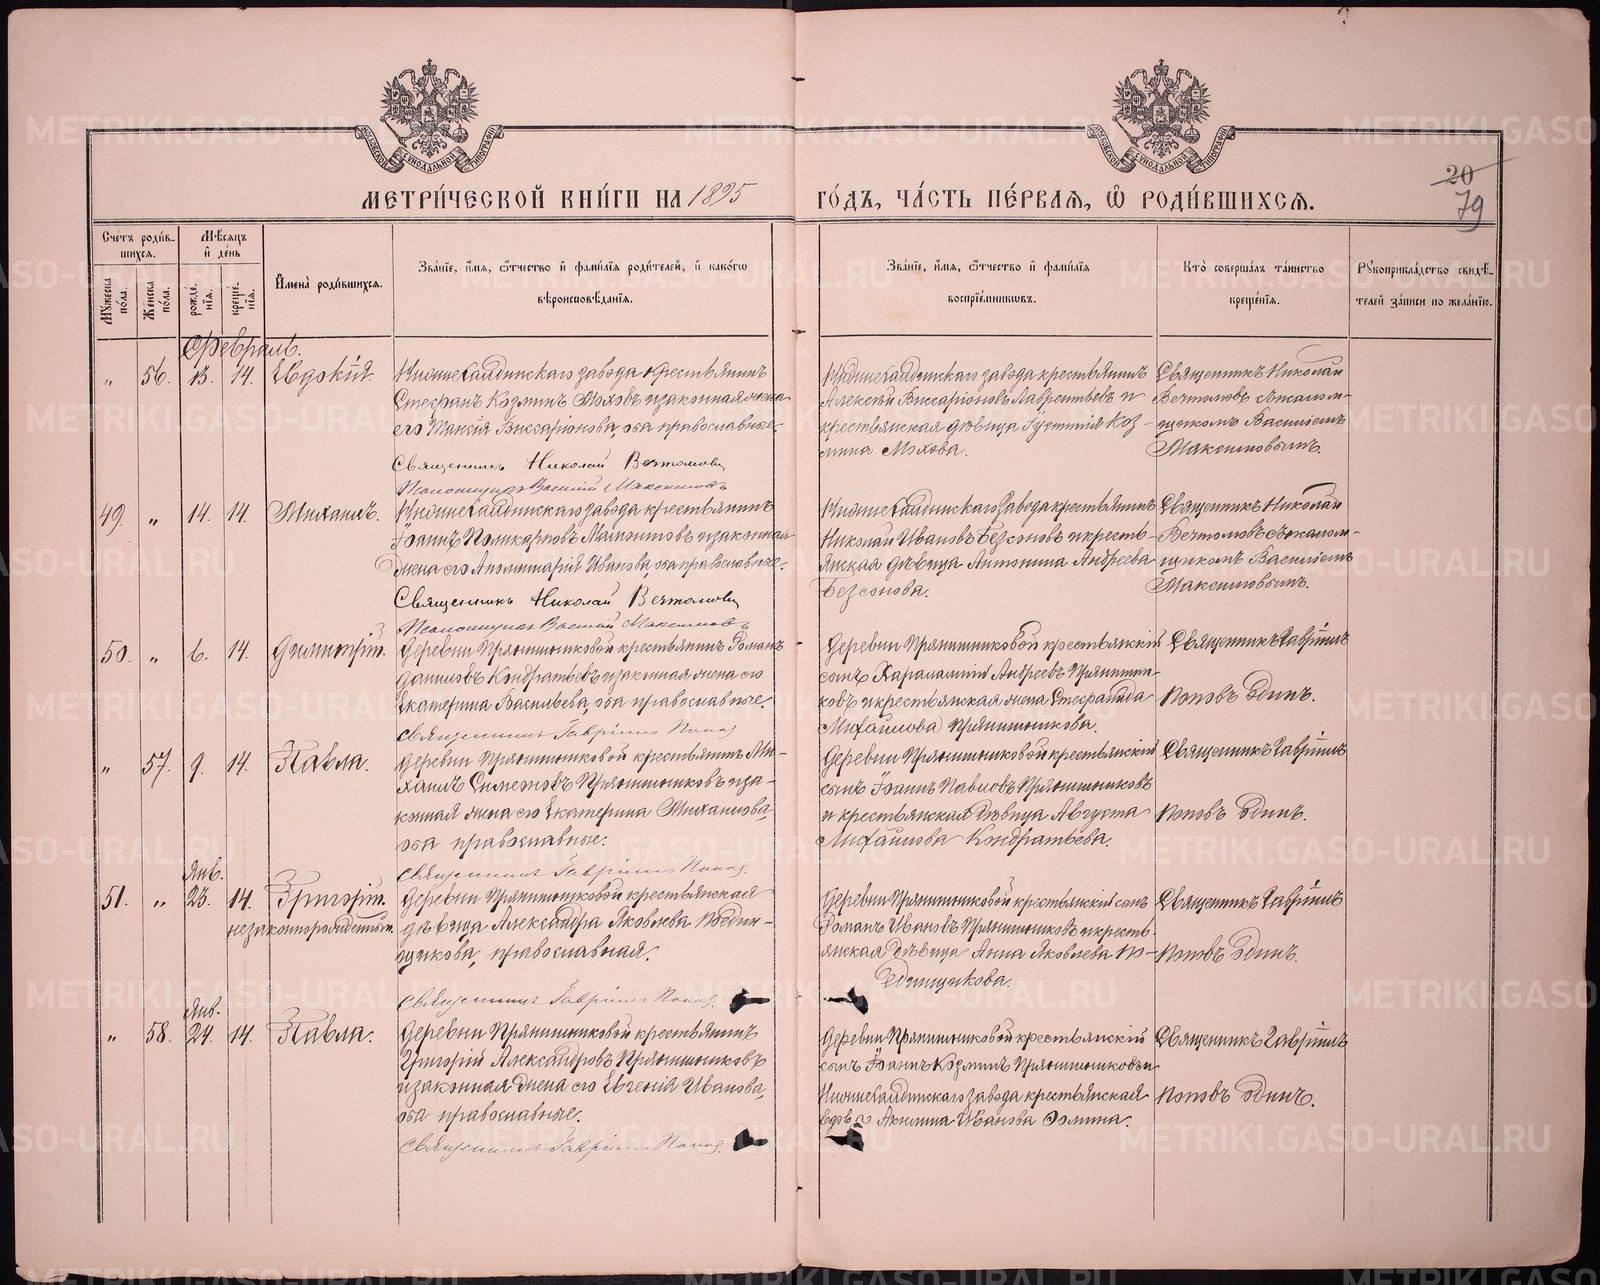 МЕТРИЧЕСКОЙ КНИГИ НА 1895 ГОДЪ, ЧАСТЬ ПЕРВАЯ, Ѿ РОДИВШИХСЯ.
20
79
Счетъ родившихся.
Мужеска пола.
Женска пола.
Мѣсяцъ и день
рожденія.
крещенія.
Имена родившихся.
Званіе, имя, отчество и фамилія родителей, и какогѡ
вѣроисповѣданія.
Званіе, имя, отчество и фамилія
воспріемниковъ.
Кто совершалъ таинство
крещенія.
Рукоприкладство свидѣ-
телей записи по желанію.
Февраль.
" 56. 13. 14. Евдокія.
Нижнесалдинскаго завода крестьянинъ
Стефанъ Козминъ Моховъ и законная жена
его Таисія Виссаріонова, оба православные.
Священникъ Николай Вечтомовъ
Псаломщикъ Василій Максимовъ
Нижнесалдинскаго завода крестьянинъ
Алексѣй Виссаріоновъ Лаврентьевъ и
крестьянская дѣвица Іустинія Коз-
мина Мохова.
Священникъ Николай
Вечтомовъ съ псалом-
щикомъ Василіемъ
Максимовымъ.
49. " 14. 14. Михаилъ.
Нижнесалдинскаго завода крестьянинъ
Іоаннъ Поликарповъ Мамонтовъ и законная
жена его Аполлинарія Иванова, оба православные.
Священникъ Николай Вечтомовъ
Псаломщикъ Василій Максимовъ
Нижнесалдинскаго завода крестьянинъ
Николай Ивановъ Безсоновъ и кресть-
янская дѣвица Антонина Андреева
Безсонова.
Священникъ Николай
Вечтомовъ съ псалом-
щикомъ Василіемъ
Максимовымъ.
50. " 6. 14. Димитрій.
Деревни Прянишниковой крестьянинъ Романъ
Даниловъ Кондратьевъ и законная жена его
Екатерина Васильева, оба православные.
Священникъ Гавріилъ Поповъ
Деревни Прянишниковой крестьянскій
сынъ Харалампій Андреевъ Прянишни-
ковъ и крестьянская жена Стефанида
Михайлова Прянишникова.
Священникъ Гавріилъ
Поповъ Одинъ.
" 57. 9. 14. Павла.
Деревни Прянишниковой крестьянинъ Ми-
хаилъ Симеоновъ Прянишниковъ и за-
конная жена его Екатерина Михаилова,
оба православные.
Священникъ Гавріилъ Поповъ.
Деревни Прянишниковой крестьянскій
сынъ Іоаннъ Павловъ Прянишниковъ
и крестьянская дѣвица Августа
Михайлова Кондратьева.
Священникъ Гавріилъ
Поповъ Одинъ.
Янв.
51. " 23. 14. Григорій.
незаконнорожденный.
Деревни Прянишниковой крестьянская
дѣвица Александра Яковлева Поедин-
щикова, православная.
Священникъ Гавріилъ Поповъ.
Деревни Прянишниковой крестьянскій сынъ
Романъ Ивановъ Прянишниковъ и кресть-
янская дѣвица Анна Яковлева По-
единщикова.
Священникъ Гавріилъ
Поповъ Одинъ.
Янв.
" 58. 24. 14. Павла.
Деревни Прянишниковой крестьянинъ
Григорій Александровъ Прянишниковъ
и законная жена его Евгенія Иванова,
оба православные.
Священникъ Гавріилъ Поповъ.
Деревни Прянишниковой крестьянскій
сынъ Іоаннъ Козминъ Прянишниковъ и
Нижнесалдинскаго завода крестьянская
вдова Акилина Иванова Зорина.
Священникъ Гавріилъ
Поповъ Одинъ.
METRIKI.GASO-URAL.RU